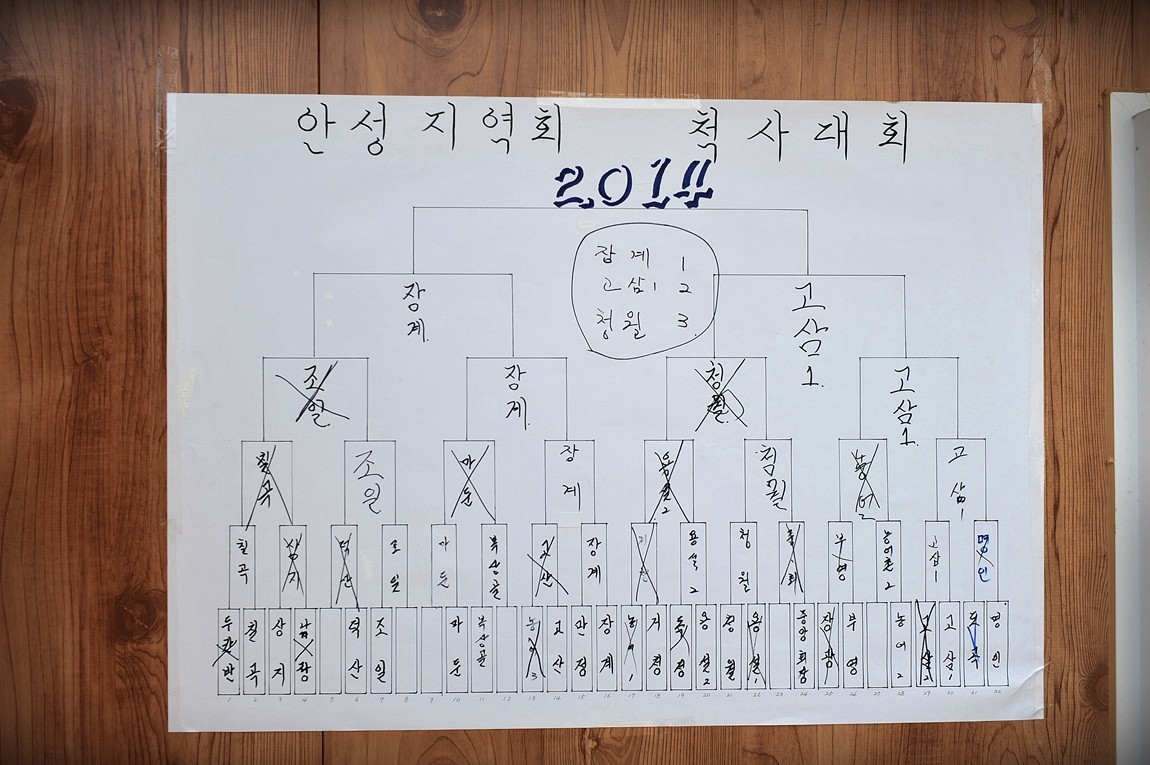 안성지역회 척사대회
2014
장계 1
고삼1 2
청월 3
장계.
고삼1.
조일
장계.
청월
고삼1.
칠곡
조일
마둔
장계
용설2
고삼1
칠곡
삼지
덕산
조일
마둔
북상골
고산
장계
용설2
청월
부영
농어촌2
고삼1
명인
두칸반
칠곡
상지
덕산
조일
마둔
북상골
고산
만정
장계
농어1
용설2
청월
용설1
중앙회장
장광
부영
농어2
고삼2
고삼1
명인
1 2 3 4 5 6 7 8 9 10 11 12 13 14 15 16 17 18 19 20 21 22 23 24 25 26 27 28 29 30 31 32